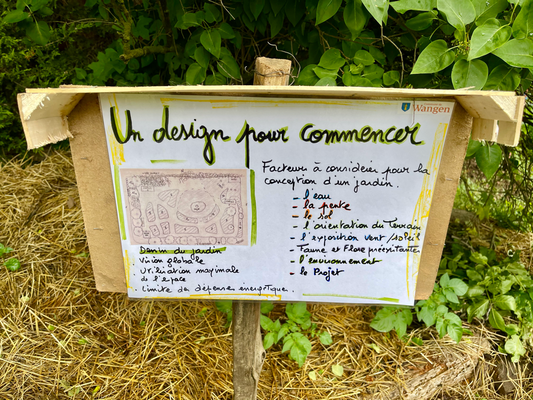 Wangen
Un design pour commencer
Facteurs à considérer pour la
conception d'un jardin.
- l'eau
- la pente
- le sol
- l'orientation du Terrain
- l'exposition vent/soleil
- Faune et Flore préexistante
- l'environnement
- le Projet
Dessin du jardin
Vision globale
Utilisation maximale
de l'espace
. Limite des dépenses énergetique.